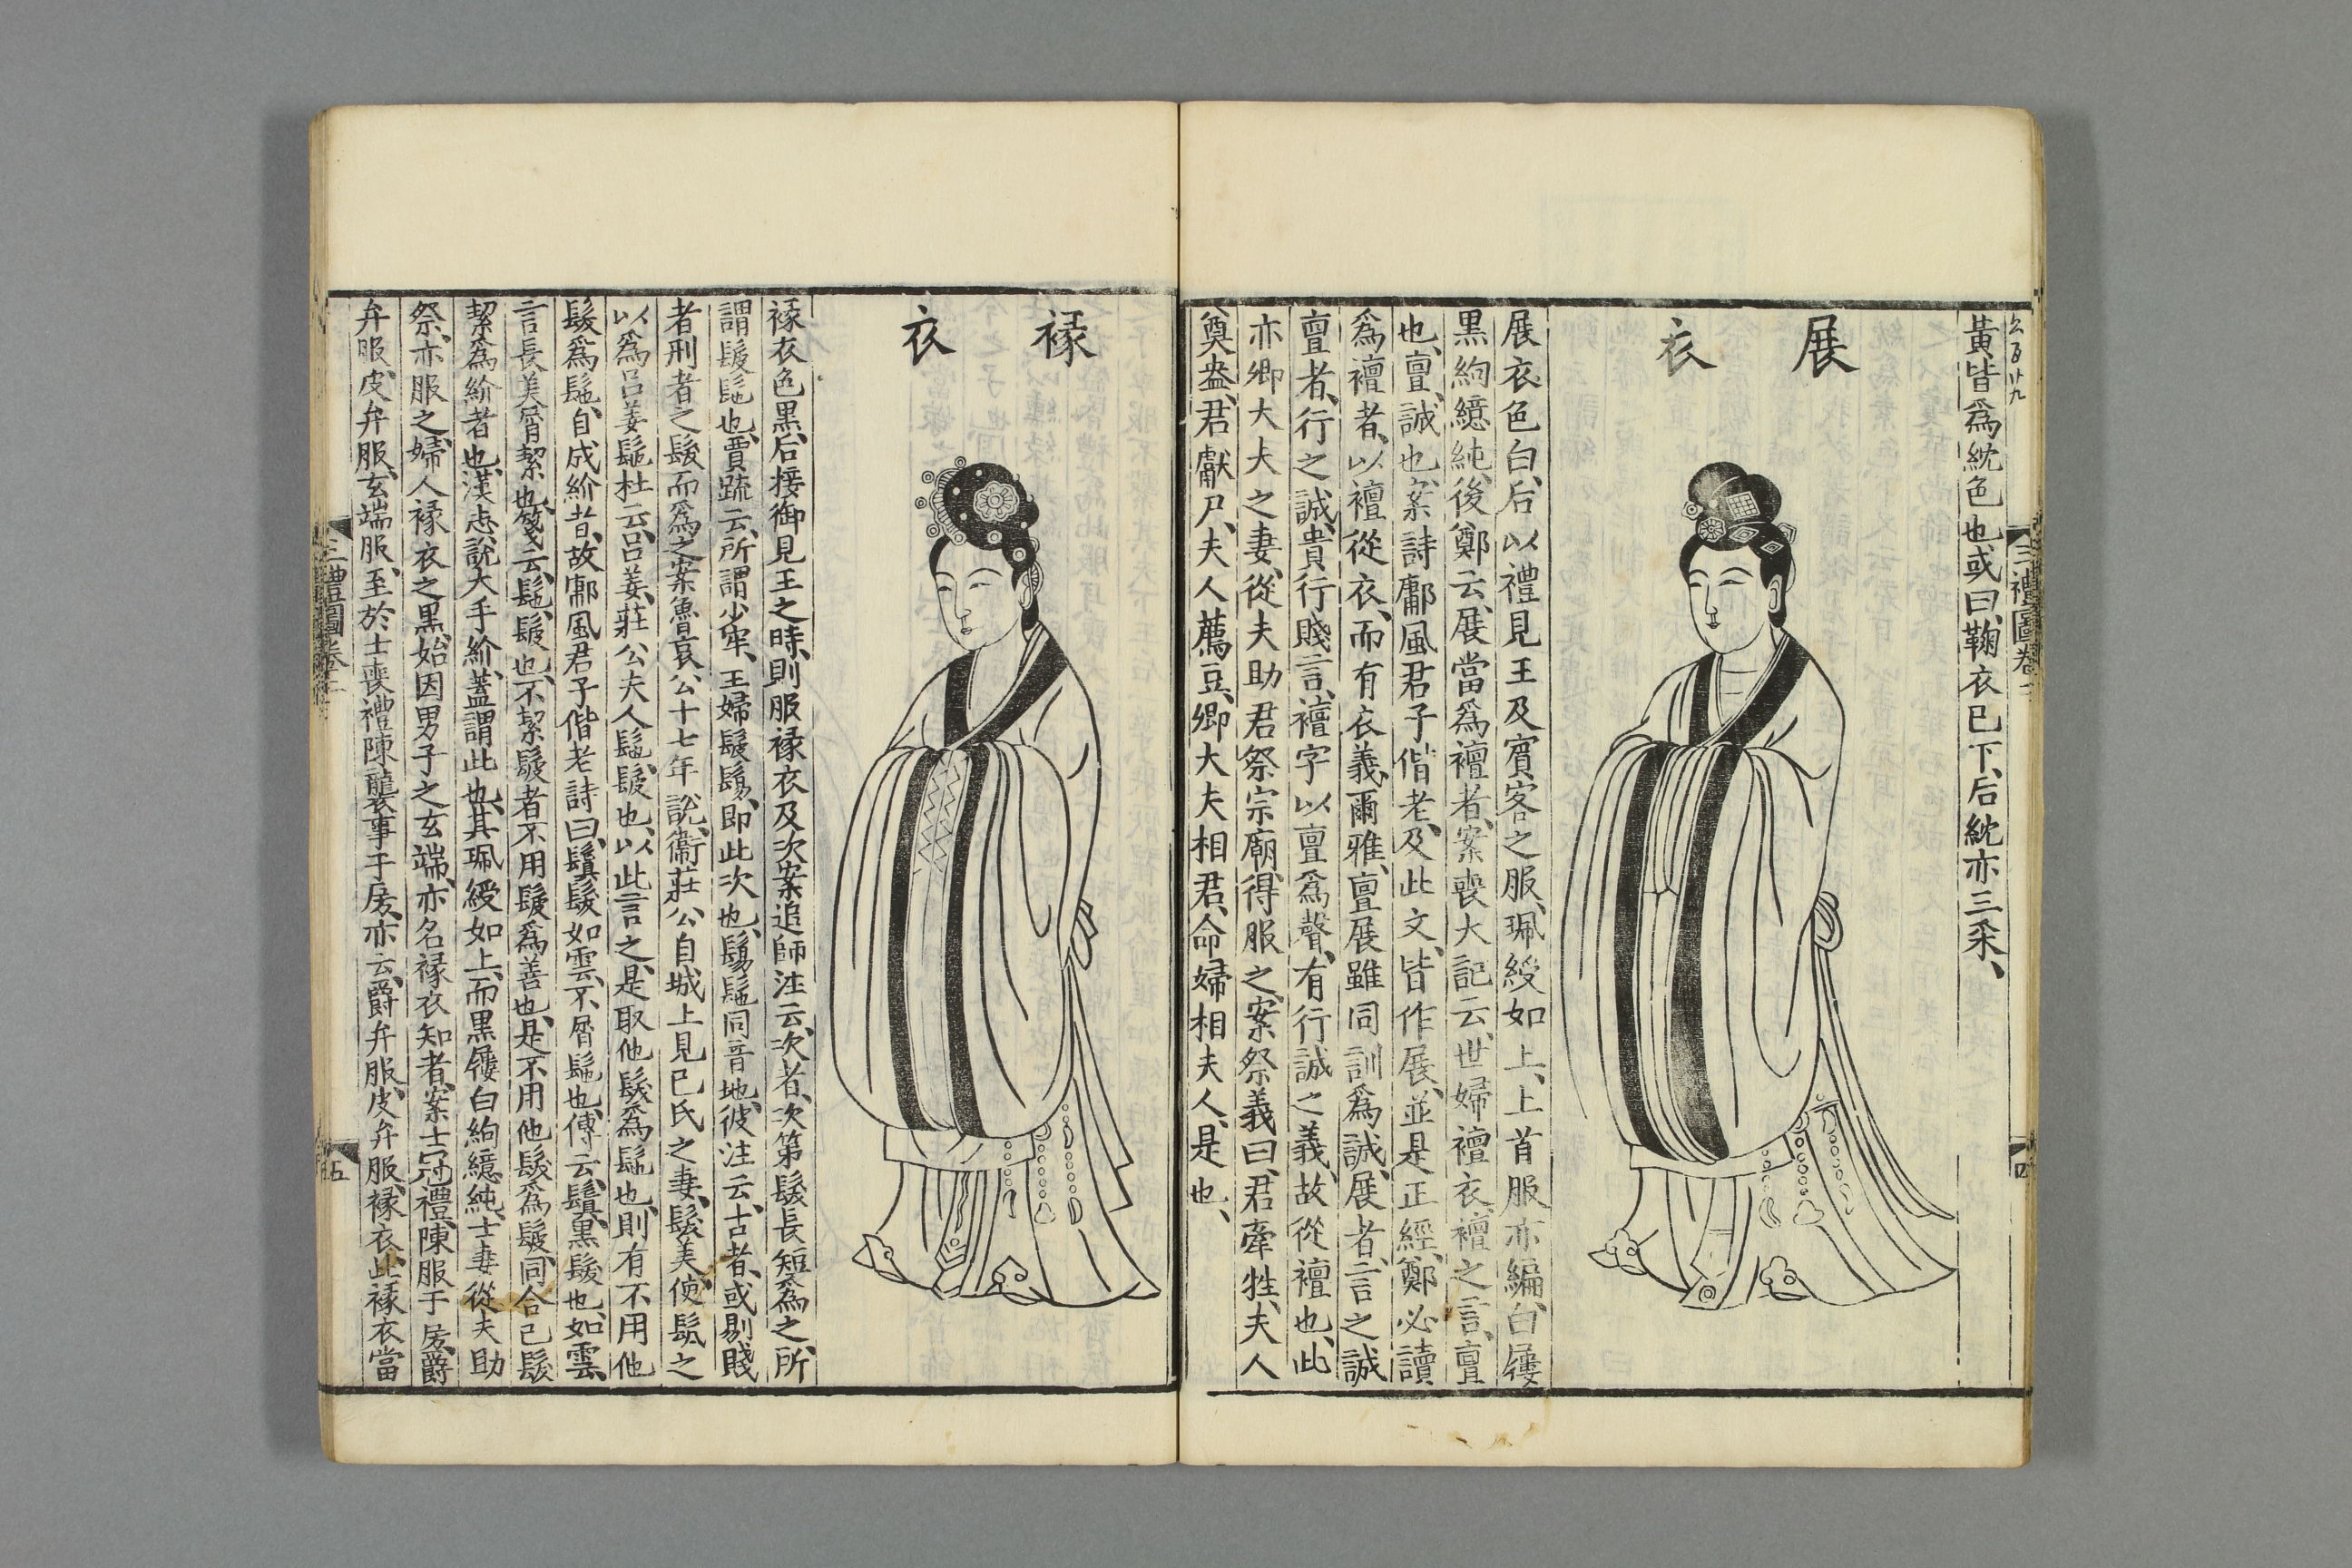 黃皆爲紞色也或曰、鞠衣已下、后紞亦三采、
展衣
展衣色白、后以禮見王及賓客之服、珮綬如上、上首服亦編、白屨
黑絇繶純、後鄭云、展當爲襢者、案喪大記云、世婦襢衣、襢之言、亶
也、亶、誠也、案詩鄘風君子偕老、及此文、皆作展、並是正經、鄭必讀
爲襢者、以襢從衣、而有衣義、爾雅、亶展雖同訓爲誠、展者、言之誠
亶者、行之誠、貴行賤言、襢字以亶爲聲、有行誠之義、故從襢也、此
亦卿大夫之妻、從夫助君祭宗廟、得服之、案祭義曰、君牽牲、夫人
奠盎、君獻尸、夫人薦豆、卿大夫相君、命婦相夫人、是也、
三禮圖卷二
四
褖衣
褖衣色黑、后接御見王之時、則服褖衣及次、案追師注云、次者、次第髮長短爲之、所
謂髲髢也、賈疏云、所謂少牢、王婦髲鬄、即此次也、鬄髢同音地、彼注云、古者、或剔賤
者刑者之髮而爲之、案魯哀公十七年說、衞莊公自城上見已氏之妻、髮美、使髡之
以爲呂姜髢、杜云、呂姜、莊公夫人、髢、髲也、以此言之、是取他髮爲髢也、則有不用他
髮爲髢、自成紒者、故鄘風君子偕老詩曰、鬒髮如雲、不屑髢也、傳云、鬒、黑髮也、如雲、
言長美、屑、絜也、箋云、髢、髲也、不絜髲者、不用髲爲善也、是不用他髮爲髲、同合已髮
絜爲紒者也、漢志、說大手紒、蓋謂此也、其珮綬如上、而黑屨白絇繶純、士妻從夫助
祭、亦服之、婦人褖衣之黑、始因男子之玄端、亦名褖衣、知者、案士冠禮、陳服于房、爵
弁服、皮弁服、玄端服、至於士喪禮、陳襲事于房、亦云、爵弁服、皮弁服、褖衣、此褖衣當
三禮圖卷二
五